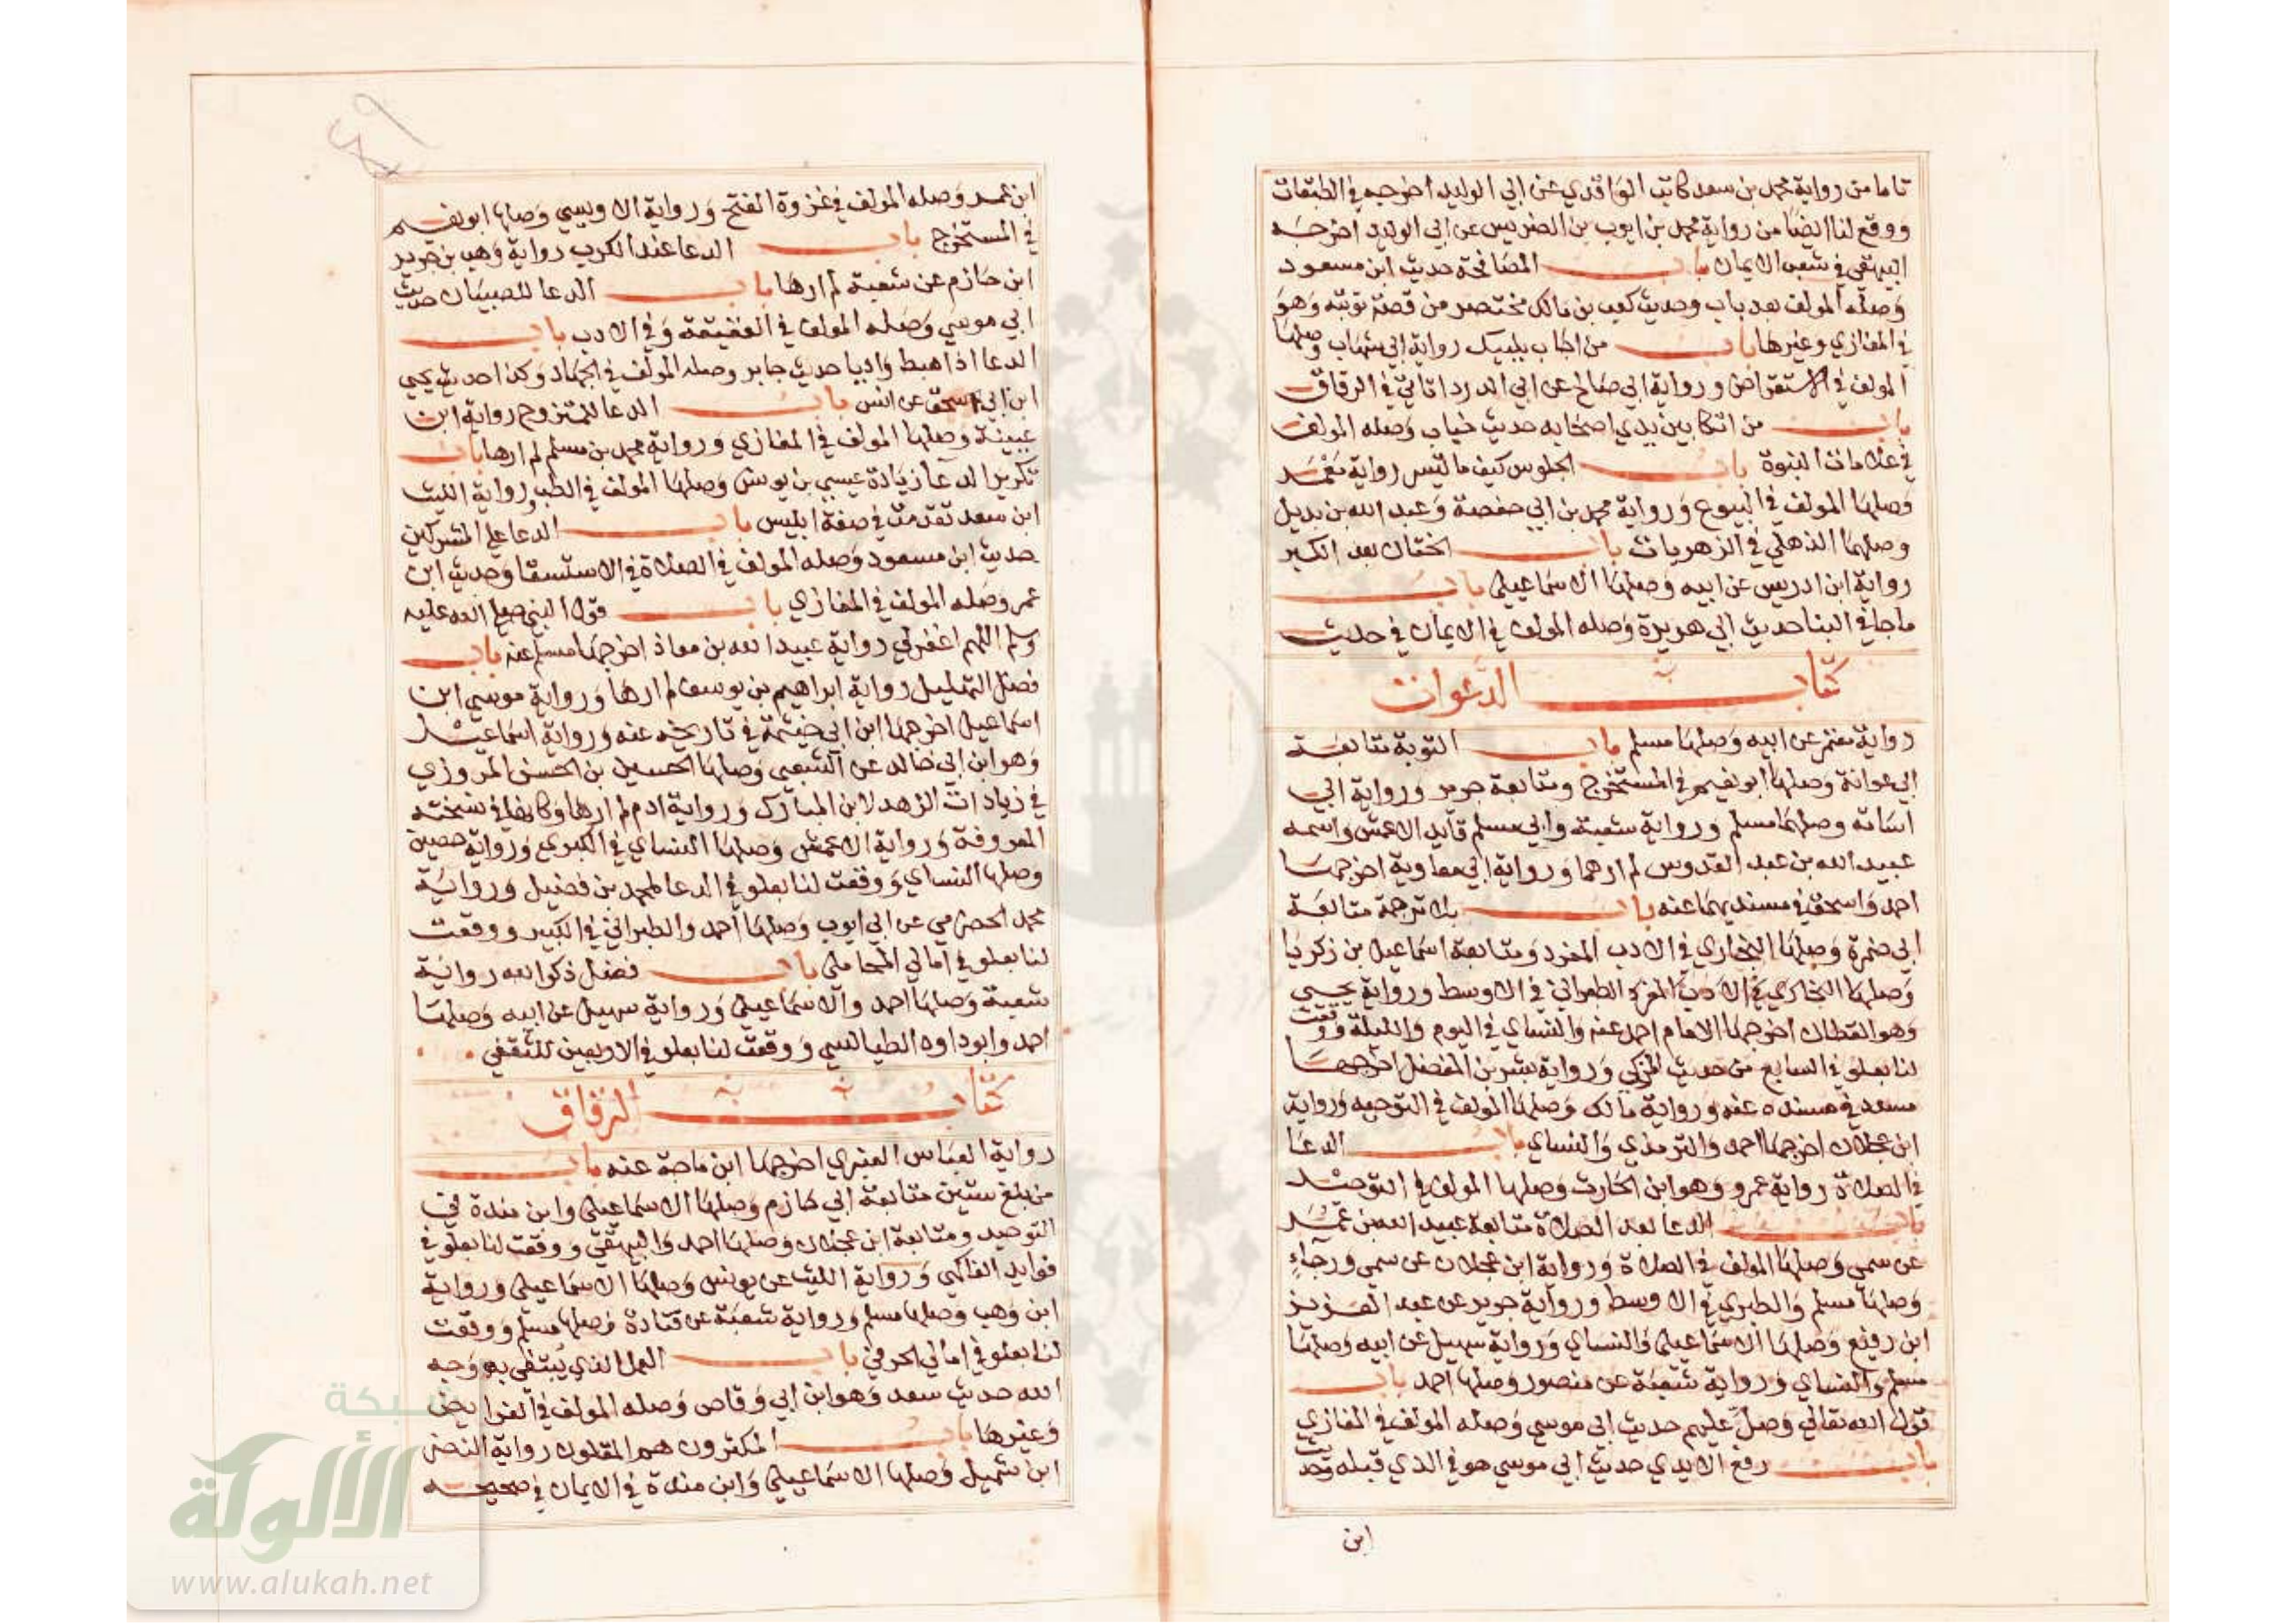 تاما من رواية محمد بن سعد كاتب الواقدي عن ابي الوليد اخرجه في الطبقات
ووقع لنا ايضا من رواية محمد بن ايوب بن الضريس عن ابي الوليد اخرجه
البيهقي في شعب الايمان باب المصافحة حديث ابن مسعود
وصله المولف بعد باب وحديث كعب بن مالك مختصر من قصة توبته وهو
في المغازي وغيرها باب من اجاب بلبيك رواية ابي شهاب وصلها
المولف في الاستقراض ورواية ابي صالح عن ابي الدرداء تاتي في الرقاق
باب من اتكا بين يدي اصحابه حديث خباب وصله المولف
في علامات النبوة باب الجلوس كيف ما تيسر رواية معمر
وصلها المولف في البيوع ورواية محمد بن ابي حفصة وعبد الله بن بديل
وصلهما الذهلي في الزهريات باب الختان بعد الكبر
رواية ابن ادريس عن ابيه وصلها الاسماعيلي باب
ما جا في البنا حديث ابي هريرة وصله المولف في الايمان في حديث
كتاب الدعوات
رواية معتمر عن ابيه وصلها مسلم باب التوبة متابعة
ابي عوانة وصلها ابو نعيم في المستخرج ومتابعة جرير ورواية ابي
اسامه وصلهما مسلم ورواية شعبة وابي مسلم قايد الاعمش واسمه
عبيد الله بن عبد القدوس لم ارهما ورواية ابي معاوية اخرجها
احمد واسحق في مسنديهما عنه باب بلا ترجمة متابعة
ابي ضمرة وصلها البخاري في الادب المفرد ومتابعة اسماعيل بن زكريا
وصلها البخاري في الادب المفرد الطبراني في الاوسط ورواية يحيي
وهو القطان اخرجها الامام احمد عنه والنساي في اليوم والليلة ووقعت
لنا بعلو في السابع من حديث المزكي ورواية بشر بن المفضل اخرجها
مسدد في مسنده عنه ورواية مالك وصلها المولف في التوحيد ورواية
ابن عجلان اخرجها احمد والترمذي والنساي باب الدعا
في الصلاة رواية عمرو وهو ابن الحارث وصلها المولف في التوحيد
باب الدعا بعد الصلاة متابعة عبيد الله بن عمر
عن سمي وصلها المولف في الصلاة ورواية ابن عجلان عن سمي ورجاء
وصلها مسلم والطبري في الاوسط ورواية جرير عن عبد العزيز
ابن رفيع وصلها الاسماعيلي والنساي ورواية سهيل عن ابيه وصلها
مسلم والنساي ورواية شعبة عن منصور وصلها احمد باب
قول الله تعالي وصل عليهم حديث ابي موسي وصله المولف في المغازي
باب رفع الايدي حديث ابي موسي هو في الذي قبله وحديث
ابن
ابن عمر وصله المولف في غزوة الفتح ورواية الاويسي وصلها ابو نعيم
في المستخرج باب الدعا عند الكرب رواية وهب بن جرير
ابن حازم عن شعبة لم ارها باب الدعا للصبيان حديث
ابي موسي وصله المولف في العقيقة وفي الادب باب
الدعا اذا هبط واديا حديث جابر وصله المولف في الجهاد وكذا حديث يحيي
ابن ابي اسحق عن انس باب الدعا للمتزوج رواية ابن
عيينة وصلها المولف في المغازي ورواية محمد بن مسلم لم ارها باب
تكرير الدعا زيادة عيسي بن يونس وصلها المولف في الطب ورواية الليث
ابن سعد تقدمت في صفة ابليس باب الدعا علي المشركين
حديث ابن مسعود وصله المولف في الصلاة في الاستسقا وحديث ابن
عمر وصله المولف في المغازي باب قول النبي صلي الله عليه
وسلم اللهم اغفر لي رواية عبيد الله بن معاذ اخرجها مسلم عنه باب
فضل التهليل رواية ابراهيم بن يوسف لم ارها ورواية موسي ابن
اسماعيل اخرجها ابن ابي خيثمة في تاريخه عنه ورواية اسماعيل
وهو ابن ابي خالد عن الشعبي وصلها الحسين بن الحسن المروزي
في زيادات الزهد لابن المبارك ورواية ادم لم ارها وكانها في نسخته
المعروفة ورواية الاعمش وصلها النساي في الكبري ورواية حصين
وصلها النساي ووقعت لنا بعلو في الدعا لمحمد بن فضيل ورواية
محمد الحضرمي عن ابي ايوب وصلها احمد والطبراني في الكبير ووقعت
لنا بعلو في امالي المحاملي باب فضل ذكر الله رواية
شعبة وصلها احمد والاسماعيلي ورواية سهيل عن ابيه وصلها
احمد وابو داود الطيالسي ووقعت لنا بعلو في الاربعين للثقفي
كتاب الرقاق
رواية العباس العنبري اخرجها ابن ماجة عنه باب
من بلغ ستين متابعة ابي حازم وصلها الاسماعيلي وابن مندة في
التوحيد ومتابعة ابن عجلان وصلها احمد والبيهقي ووقعت لنا بعلو في
فوايد الفاكهي ورواية الليث عن يونس وصلها الاسماعيلي ورواية
ابن وهب وصلها مسلم ورواية شعبة عن قتادة وصلها مسلم ووقعت
لنا بعلو في امالي الحرفي باب العمل الذي يبتغي به وجه
الله حديث سعد وهو ابن ابي وقاص وصله المولف في الفرايض
وغيرها باب المكثرون هم المقلون رواية النضر
ابن شميل وصلها الاسماعيلي وابن مندة في الايمان في صحيحه
شبكة
الألوكة
www.alukah.net